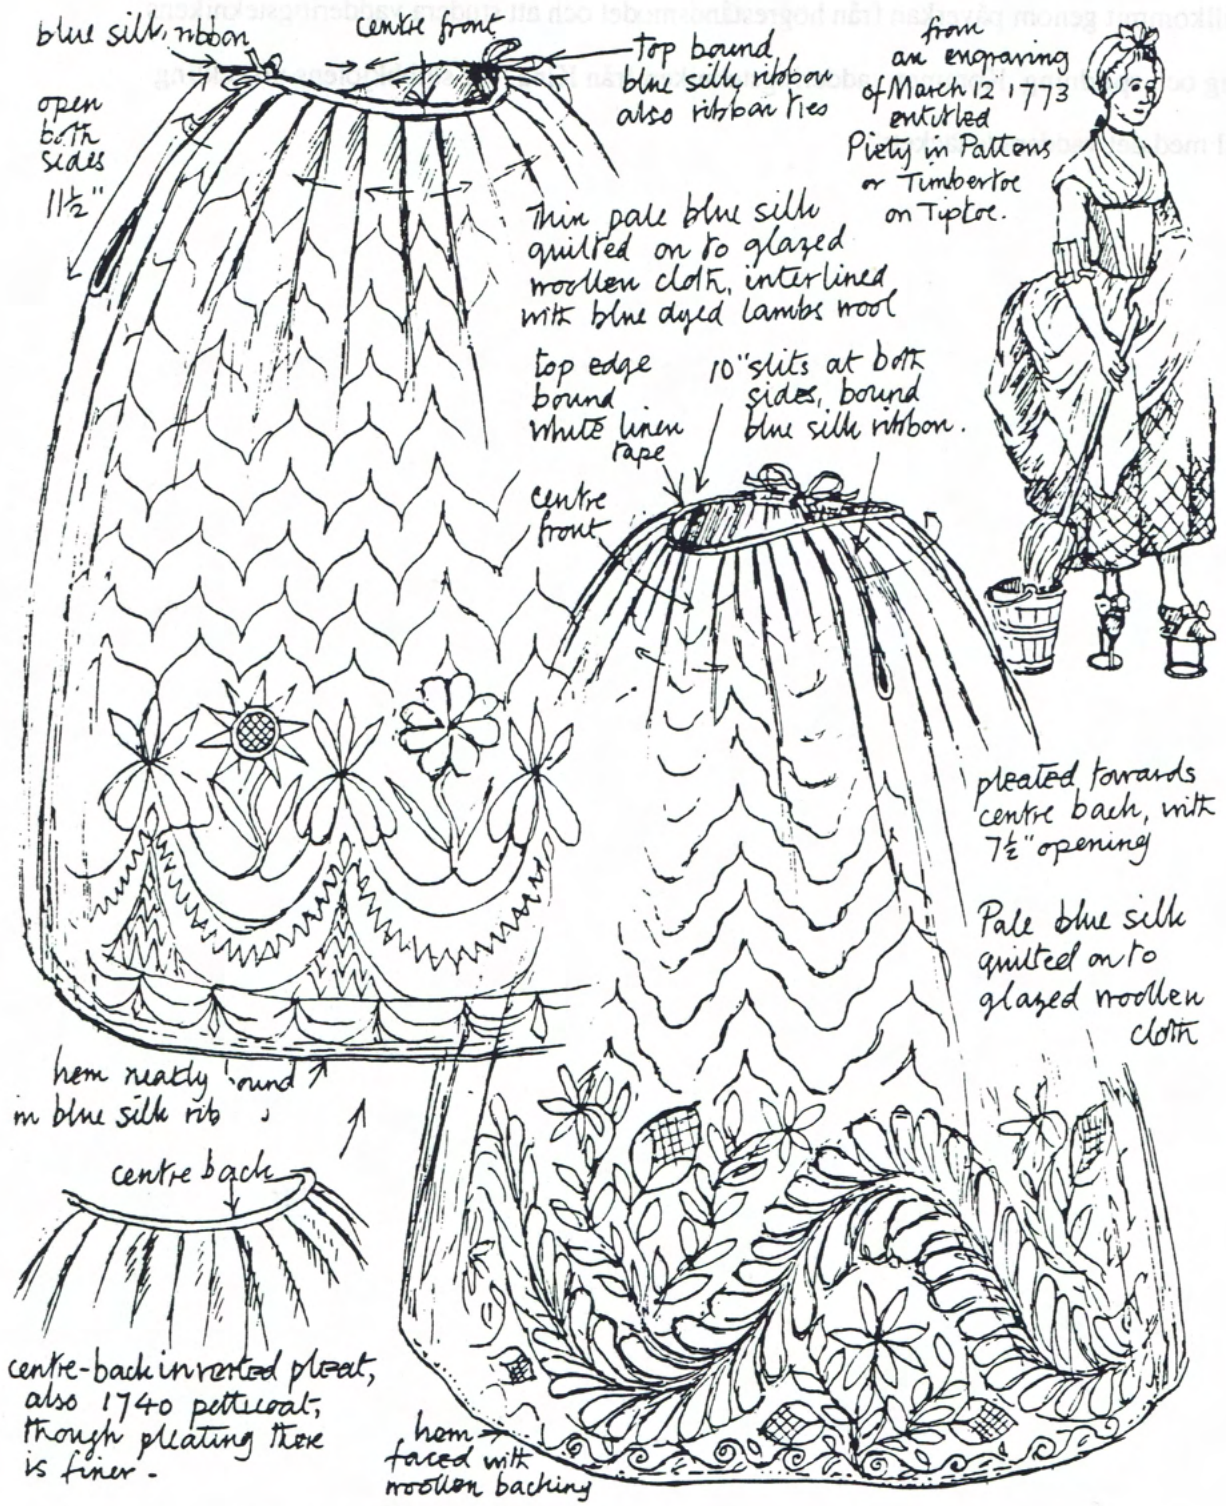 blue silk ribbon
centre front
top bound
blue silk ribbon
also ribbon ties
open
both
sides
11½"
from
an engraving
of March 12, 1773
entitled
Piety in Pattens
or Timbertoe
on Tiptoe.
Thin pale blue silk
quilted on to glazed
woollen cloth, interlined
with blue dyed lambs wool
top edge
bound
white linen
tape
10" slits at both
sides, bound
blue silk ribbon.
centre
front
pleated towards
centre back, with
7½" opening
Pale blue silk
quilted on to
glazed woollen
cloth
hem neatly 'ound
in blue silk rib
centre back
centre-back inverted pleat,
also 1740 petticoat,
though pleating there
is finer -
hem
faced with
woollen backing